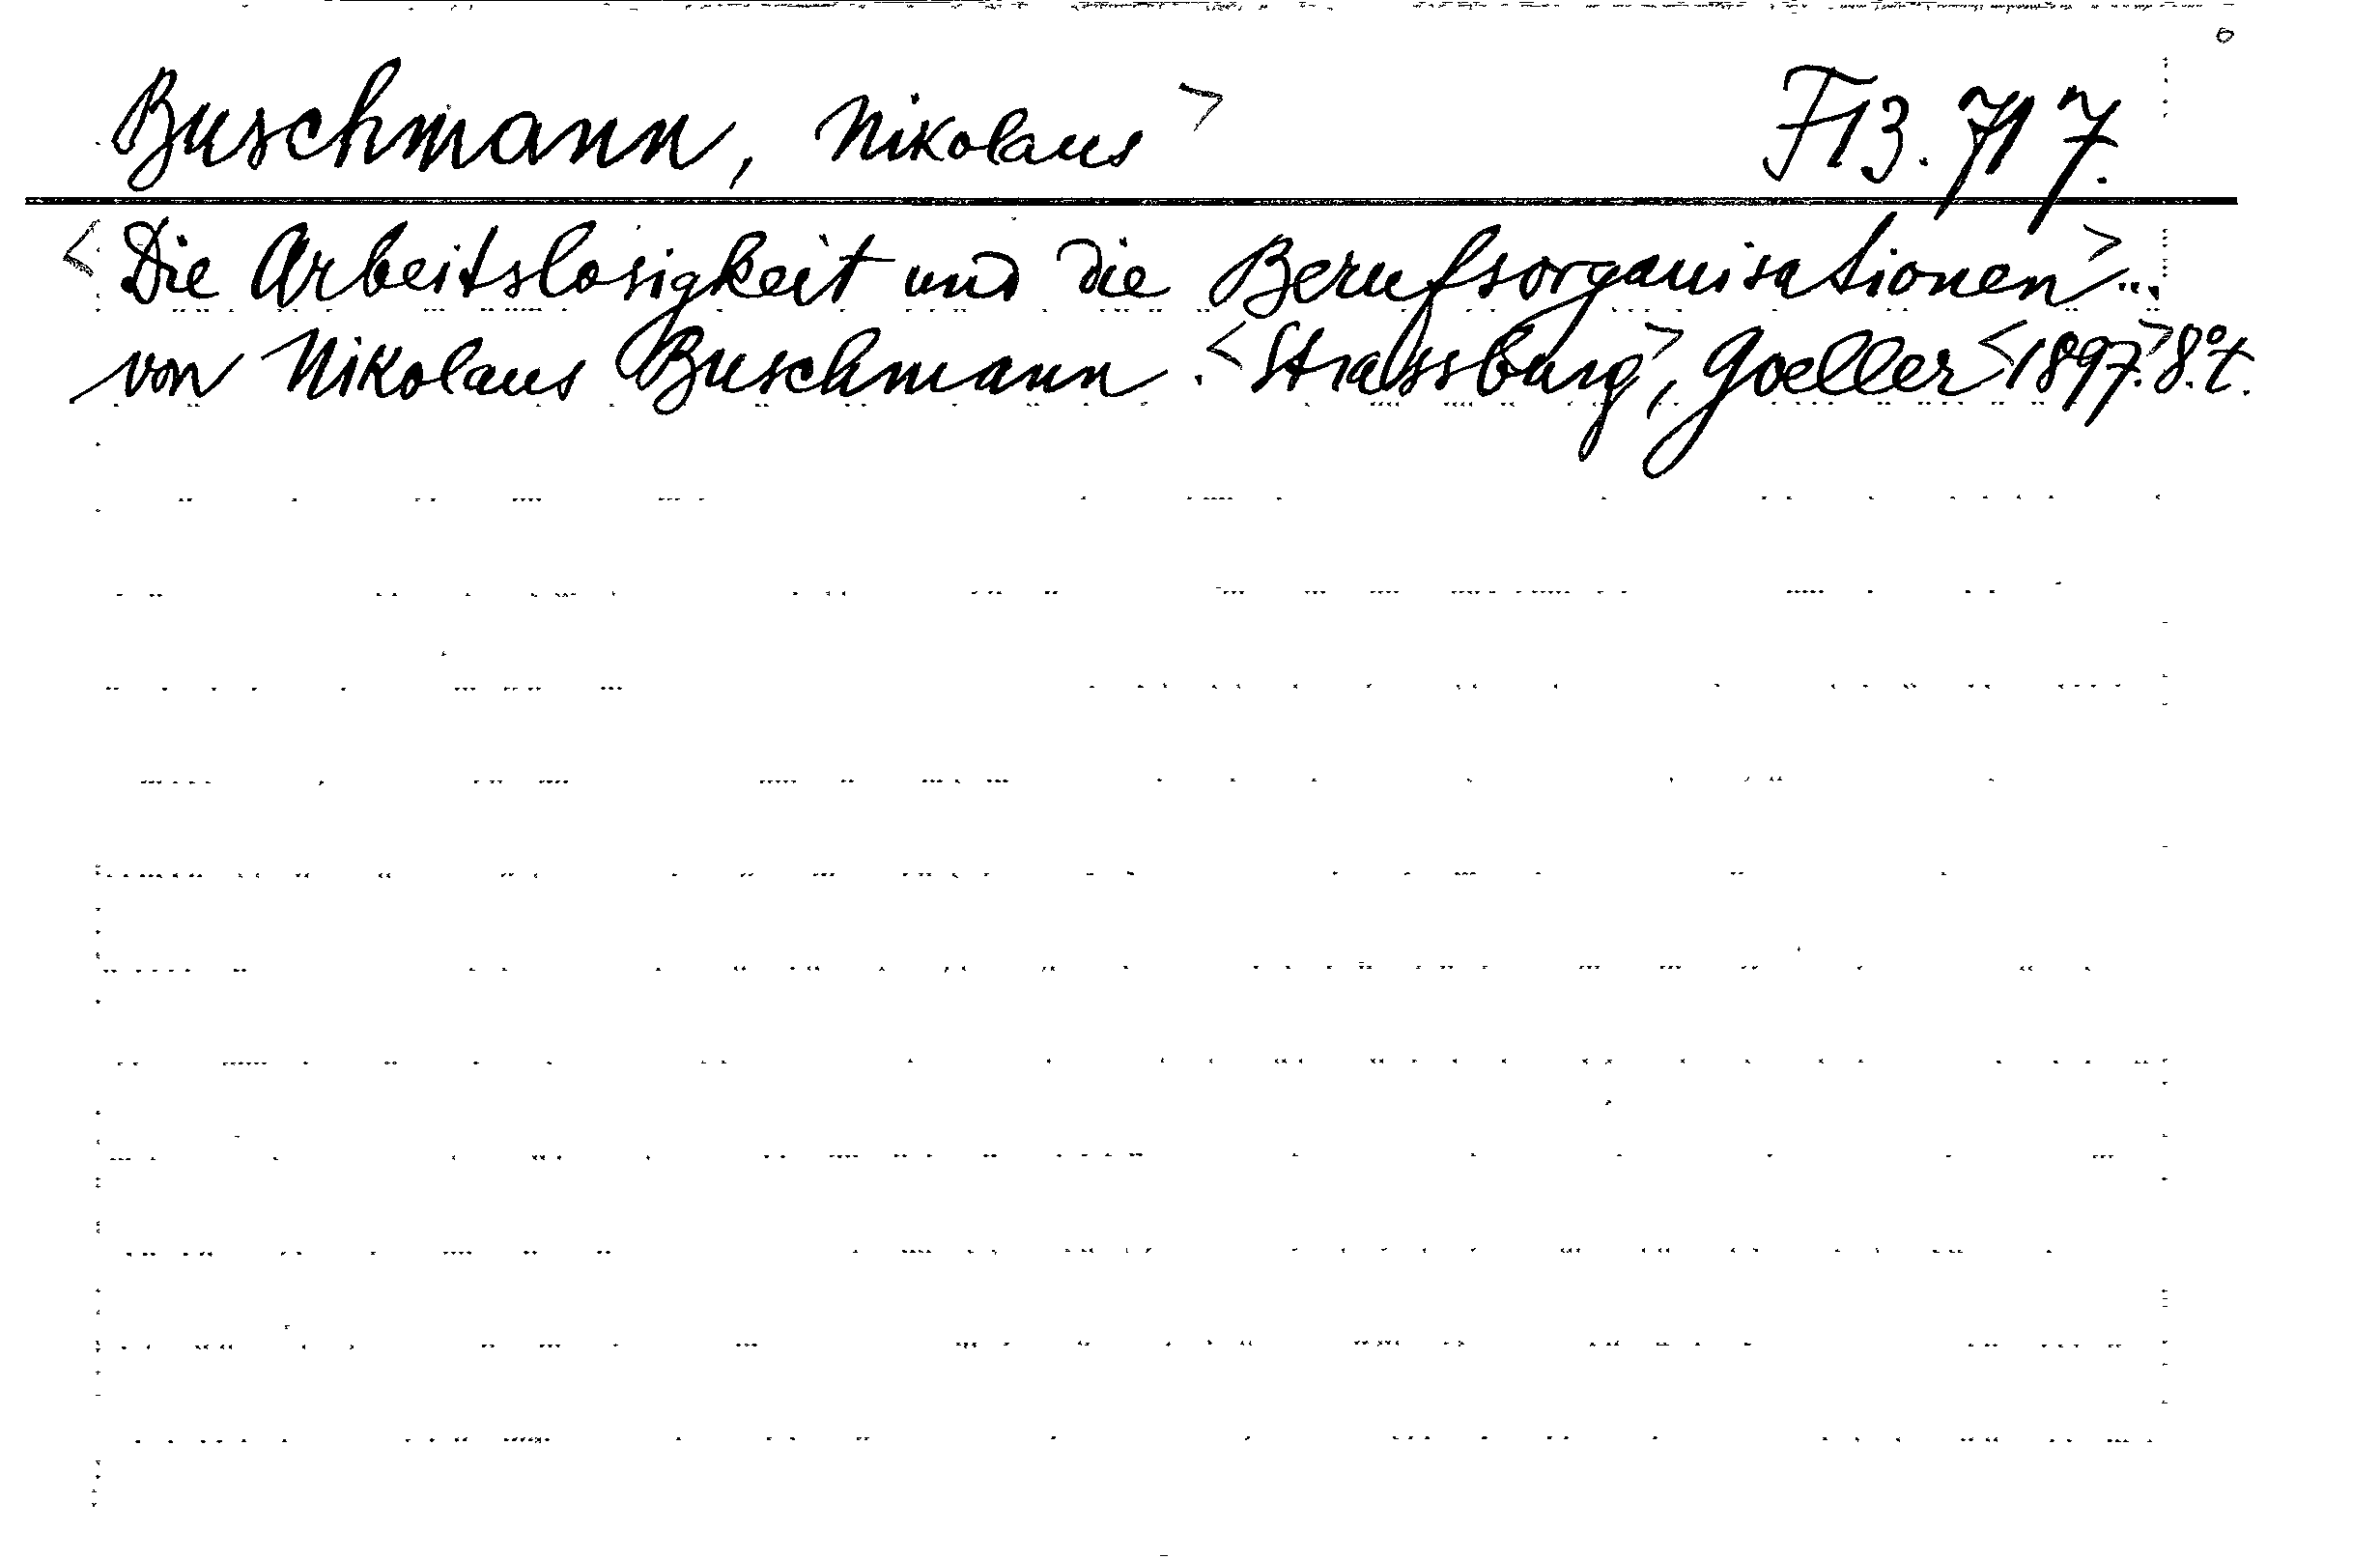 Buschmann, Nikolaus> F13.717.
<Die Arbeitslosigkeit und die Berufsorganisationen>...
von Nikolaus Buschmann. <Strassburg>, Goeller <1897.> 8.° t.